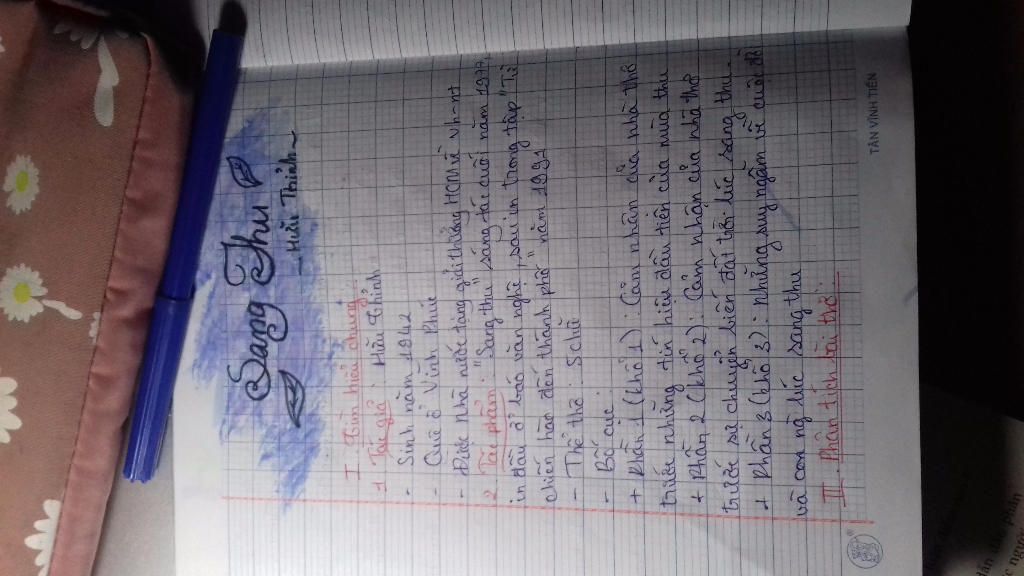 Sang Thu
- Hữu Thỉnh ~
I Tìm hiểu chung:
1 Tác giả: Hữu Thỉnh
- Sinh năm 1942
- Quê ở Vĩnh Phúc
- Được Nhà nước tặng giải thưởng HCM về vh-nt
2 Tác phẩm: "Sang thu" sáng tác cuối năm 1977,
in đầu ở báo văn nghệ, sau in trong tập "Từ
chiến hào đến thành phố" năm 1991
- Thể thơ: 5 chữ
- Bố cục:
+ Phần 1 (khổ 1): Cảm nhận của nhà thơ
trước những tín hiệu đầu tiên của mùa thu
+ Phần 2 (khổ 2): Cảm nhận của nhà thơ
trước sự chuyển biến đất trời lúc sang thu.
+ Phần 3 (khổ 3): Những suy ngẫm về cuộc đời
và con ng lúc sang thu
II. Phân tích bài thơ:
TÂN VĨNH TIẾN